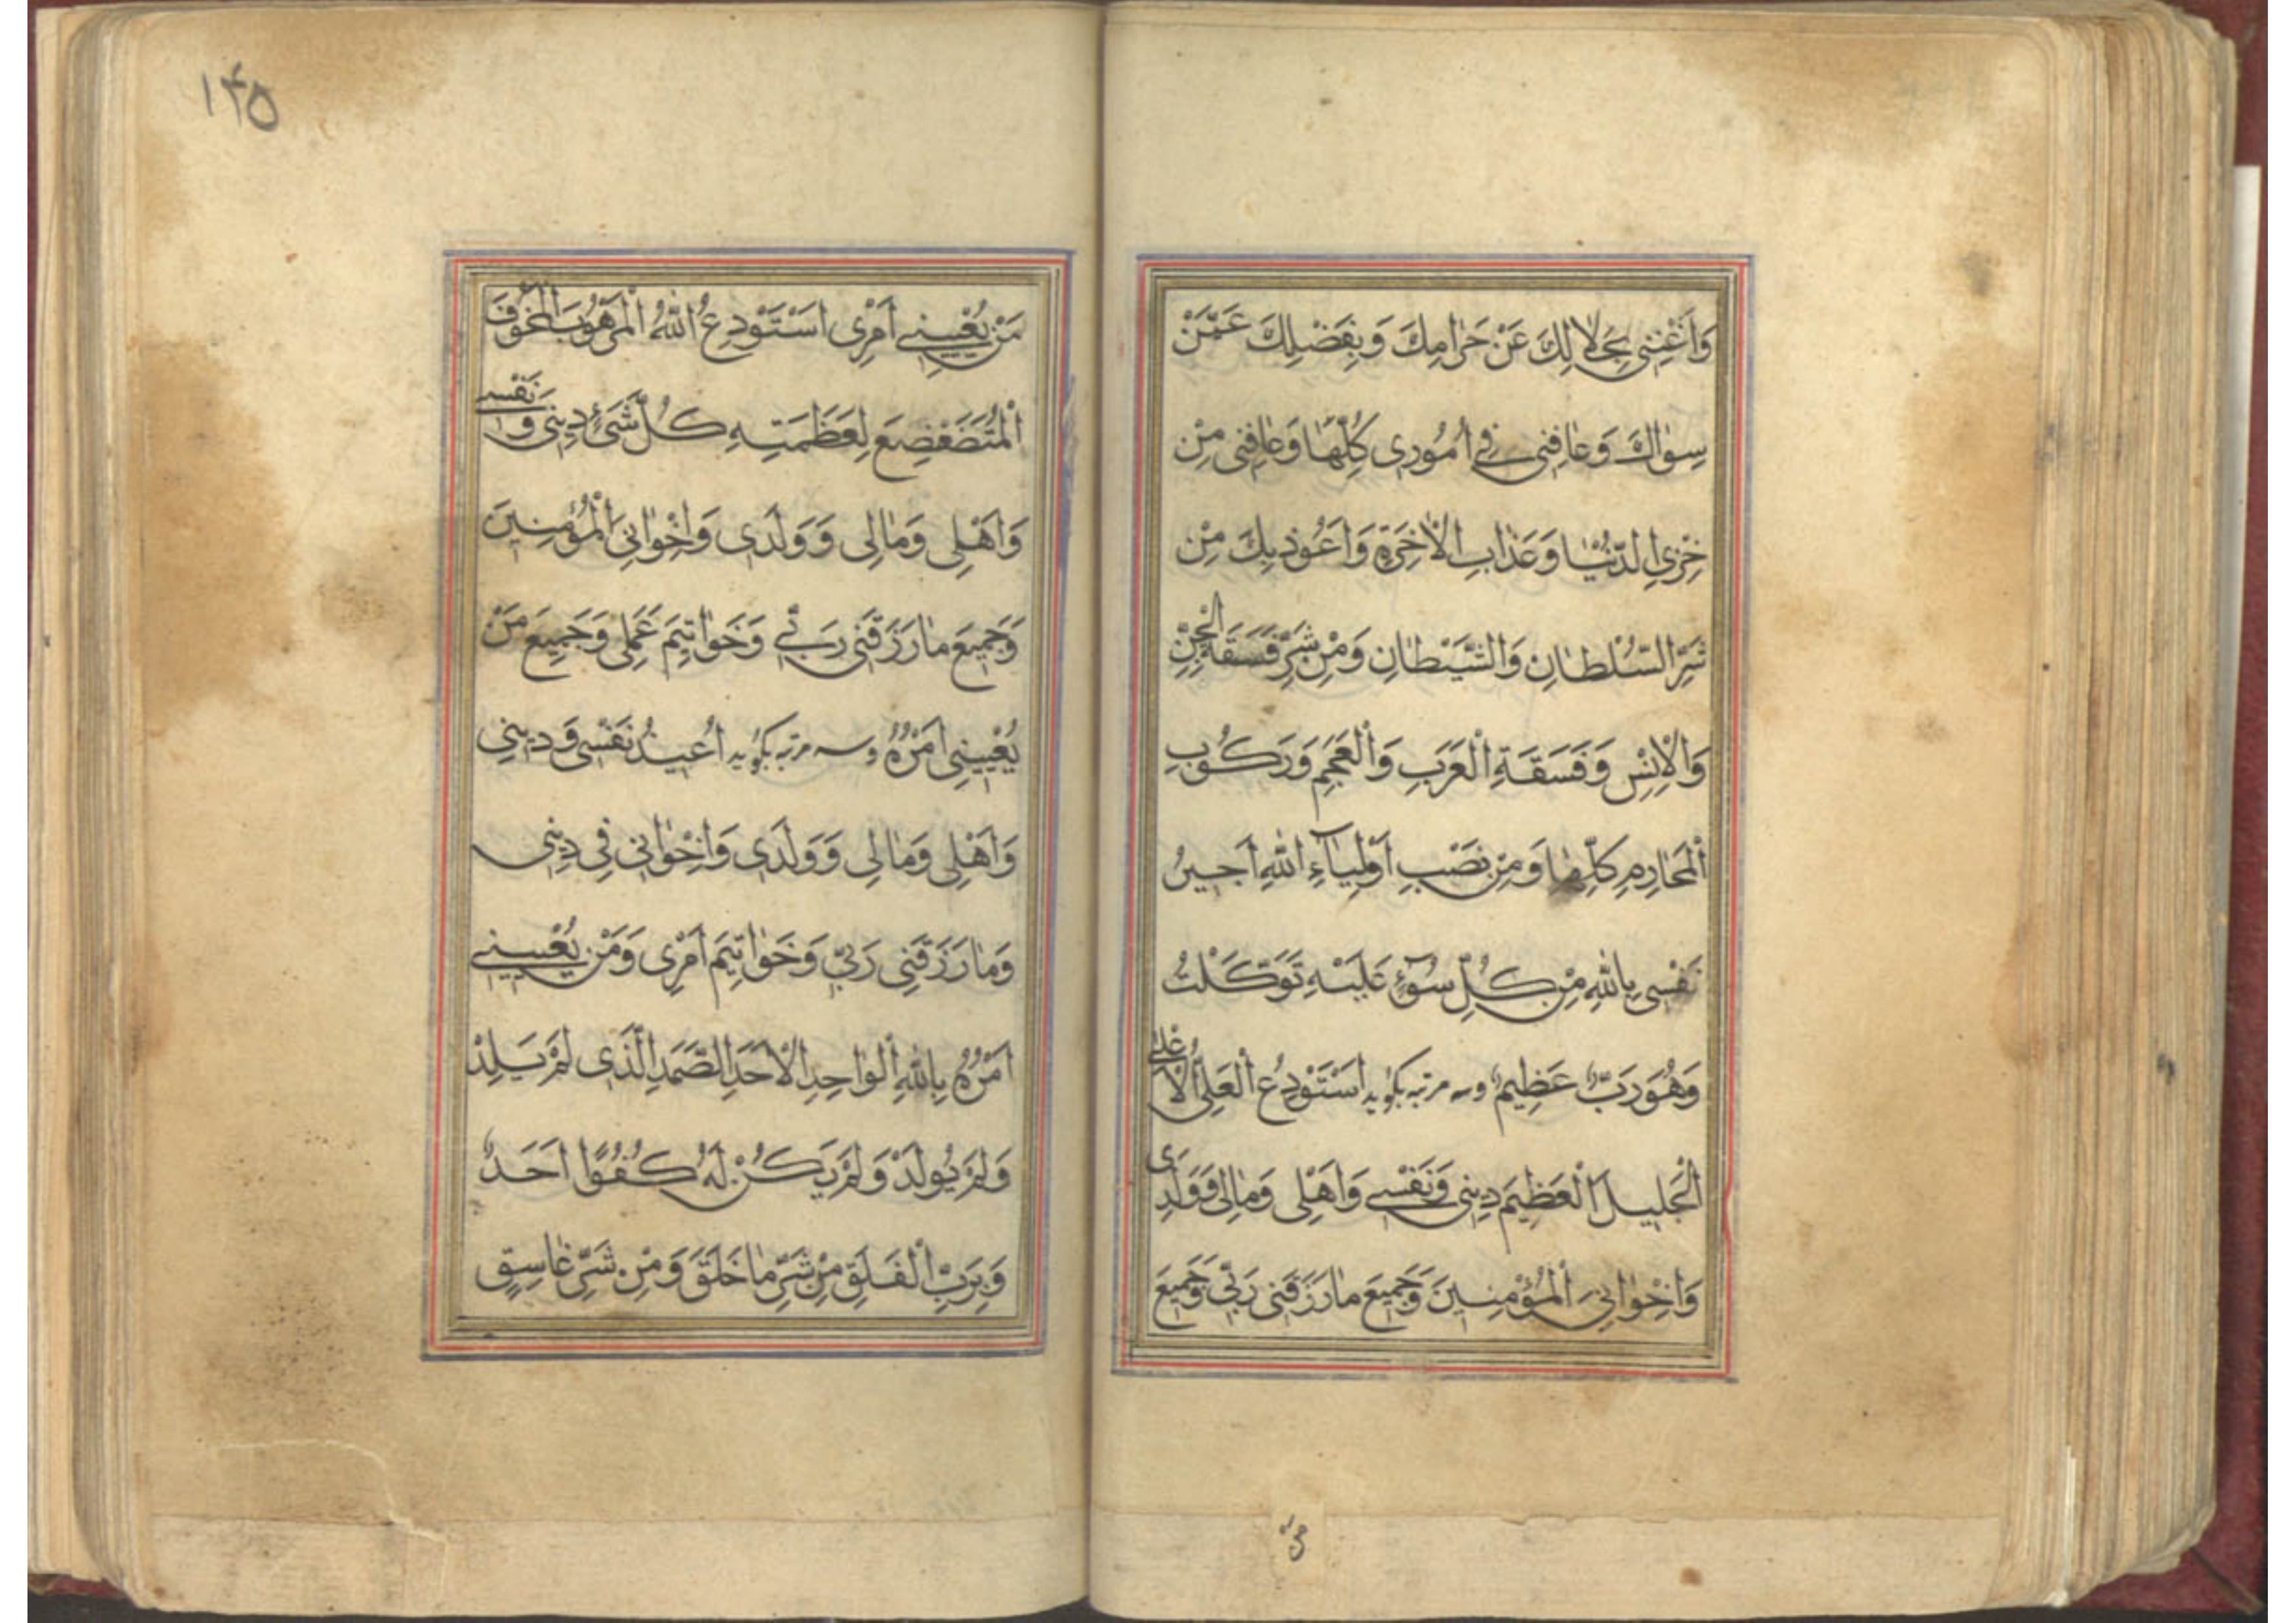 وَاَغْنِنی بِحَلالِكَ عَنْ حَرٰامِكَ وَبِفَضْلِكَ عَمَّنْ
سِوٰاكَ وَعٰافِنی فِی اُمُوری كُلِّهٰا وَعٰافِنی مِنْ
خِزْیِ الدُّنْیٰا وَعَذٰابِ الْاٰخِرَةِ وَاَعُوذُ بِكَ مِنْ
شَرِّ السُّلْطٰانِ وَالشَّیْطٰانِ وَمِنْ شَرِّ فَسَقَةِ الْجِنِّ
وَالْاِنْسِ وَفَسَقَةِ الْعَرَبِ وَالْعَجَمِ وَرَكُوبِ
الْمَحٰارِمِ كُلِّهٰا وَمِنْ نَصْبِ اَوْلِیٰآءِ اللّٰهِ اَجیرُ
نَفْسی بِاللّٰهِ مِنْ كُلِّ سُوۤءٍ عَلَیْهِ تَوَكَّلْتُ
وَهُوَ رَبٌّ عَظِیمٌ وسه مرتبه بكوید اَسْتَوْدِعُ الْعَلِیَّ الْاَعْلیٰ
الْجَلیلَ الْعَظِیمَ دِینی وَنَفْسی وَاَهْلِی وَمٰالِی وَوَلَدِی
وَاِخْوٰانِیَ الْمُؤْمِنینَ وَجَمِیعَ مٰا رَزَقَنی رَبّی وَجَمِیعَ
مر
۱۴۵
مَنْ یُعْنِینِی اَمْرِی اَسْتَوْدِعُ اللّٰهَ الْمَرْهُوبَ الْمَخُوفَ
الْمُتَضَعْضِعَ لِعَظَمَتِهِ كُلُّ شَیْءٍ دِینی وَنَفْسی
وَاَهْلِی وَمٰالِی وَوَلَدی وَاِخْوٰانِیَ الْمُؤْمِنینَ
وَجَمِیعَ مٰا رَزَقَنی رَبّی وَخَوٰاتِیمَ عَمَلِی وَجَمِیعَ مَنْ
یُعْنِینی اَمْرُهُ وسه مرتبه بكوید اُعیذُ نَفْسی وَدِینی
وَاَهْلِی وَمٰالِی وَوَلَدی وَاِخْوٰانی فِی دِینی
وَمٰا رَزَقَنِی رَبّی وَخَوٰاتِیمَ اَمْرِی وَمَنْ یُعْنِینی
اَمْرُهُ بِاللّٰهِ الْوٰاحِدِ الْاَحَدِ الصَّمَدِ الَّذی لَمْ یَلِدْ
وَلَمْ یُولَدْ وَلَمْ یَكُنْ لَهُ كُفُوًا اَحَدٌ
وَبِرَبِّ الْفَلَقِ مِنْ شَرِّ مٰا خَلَقَ وَمِنْ شَرِّ غٰاسِقٍ